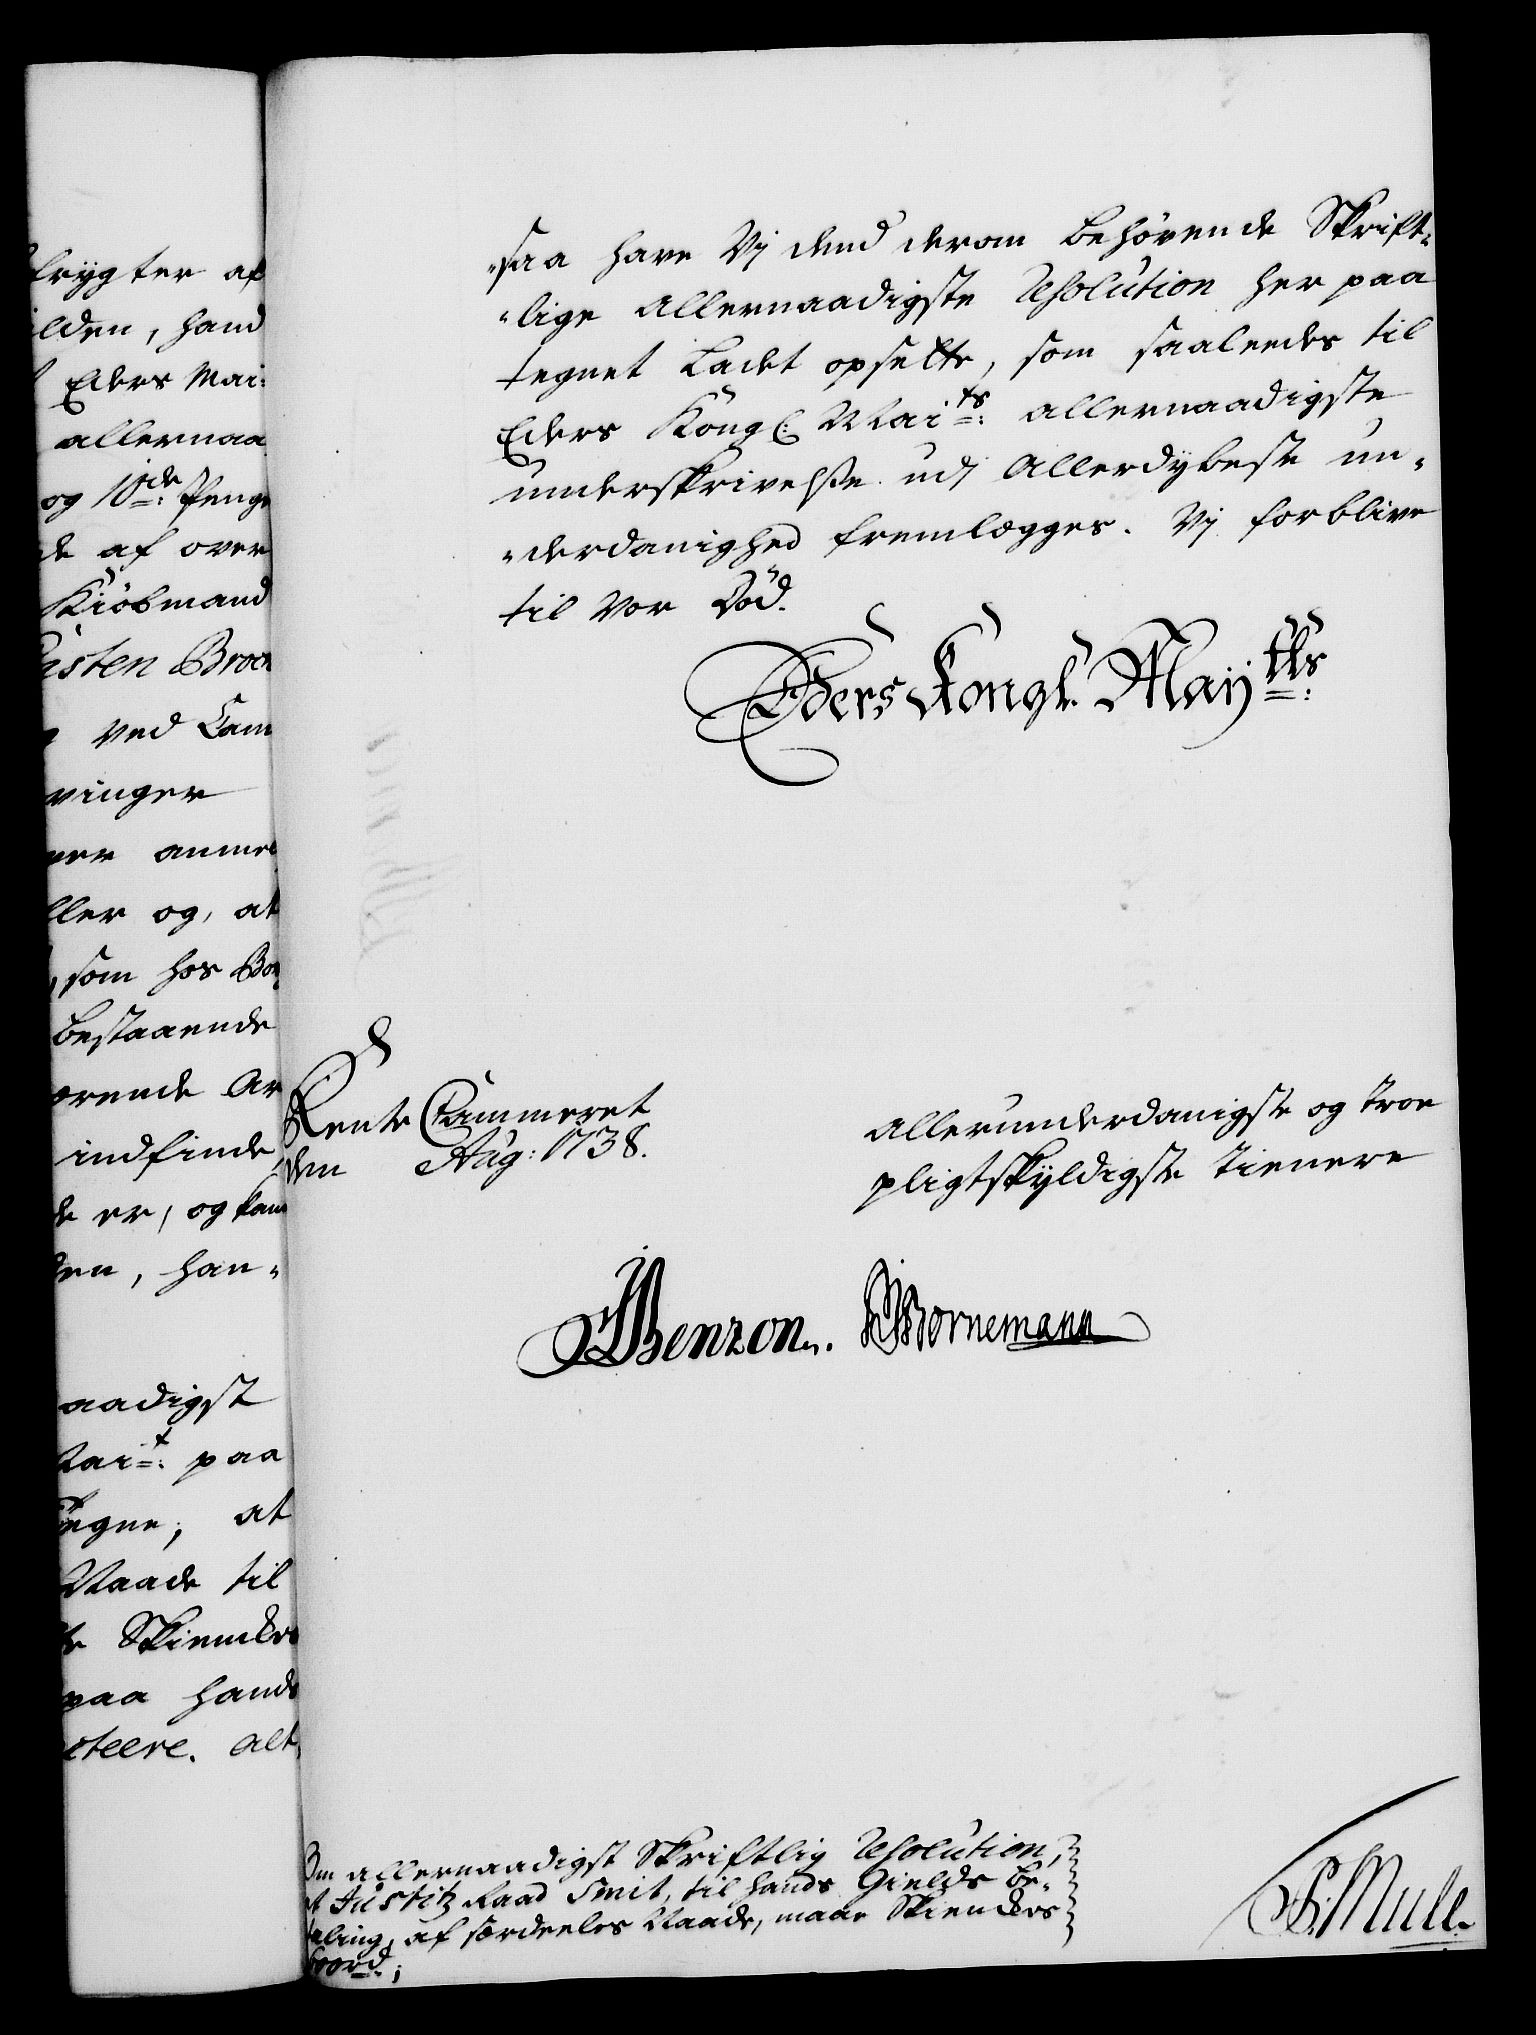 frygter af
ilden, hand
Eders Mai:
allernaa
og 10de: Penge
de af over
Kiöbmand
isten Broc
ved Cam
vinger
ver anme
ller og, at
, som hos Bor
bestaaende
ørende Ar
indfinde
de er, og kan
den, han-
aadigst
Mait: paa
tegne, at
Maade til
te Skienkes
paa hands
cteere. alt,
"saa have Vj dend derom behörende Skrift-
"lige allernaadigste Resolution her paa
tegnet ladet opsette, som saaleedes til
Eders Kongl: Maits: allernaadigste
underskrivelsse udj Allerdybeste un-
"derdanighed fremlægges. Vj forblive
til vor Död.
Eders Kongl. Maijtts:
Rente Cammeret
den Aug: 1738.
allerunderdanigste og troe
pligtskyldigste tienere
Benzon. Bornemann
Om allernaadigst Skriftlig Resolution,
at Justitz Raad Smit, til hands Gields be-
taling, af særdeeles Naade, maae Skienckes
foord.;
P: Mule.